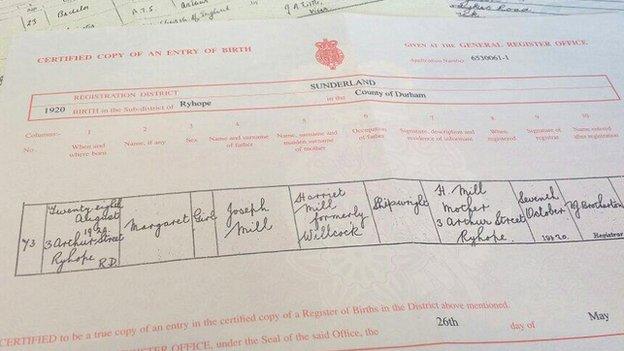 23 Bachelor A.T.S.
CERTIFIED COPY OF AN ENTRY OF BIRTH
GIVEN AT THE GENERAL REGISTER OFFICE
Application Number 6530061-1
REGISTRATION DISTRICT SUNDERLAND
1920 BIRTH in the Sub-district of Ryhope in the County of Durham
Columns:- 1 2 3 4 5 6 7 8 9 10
No. When and where born
Name, if any
Sex
Name and surname of father
Name, surname and maiden surname of mother
Occupation of father
Signature, description and residence of informant
When registered
Signature of registrar
Name entered after registration
73
Twenty eighth
August
1920
3 Arthur Street
Ryhope
R.D.
Margaret
Girl
Joseph
Mill
Harriet
Mill
formerly
Willcock
Shipwright
H. Mill
Mother
3 Arthur Street
Ryhope.
Seventh
October
1920.
Brotherton
Registrar
CERTIFIED to be a true copy of an entry in the certified copy of a Register of Births in the District above mentioned.
REGISTER OFFICE, under the Seal of the said Office, the 26th day of May